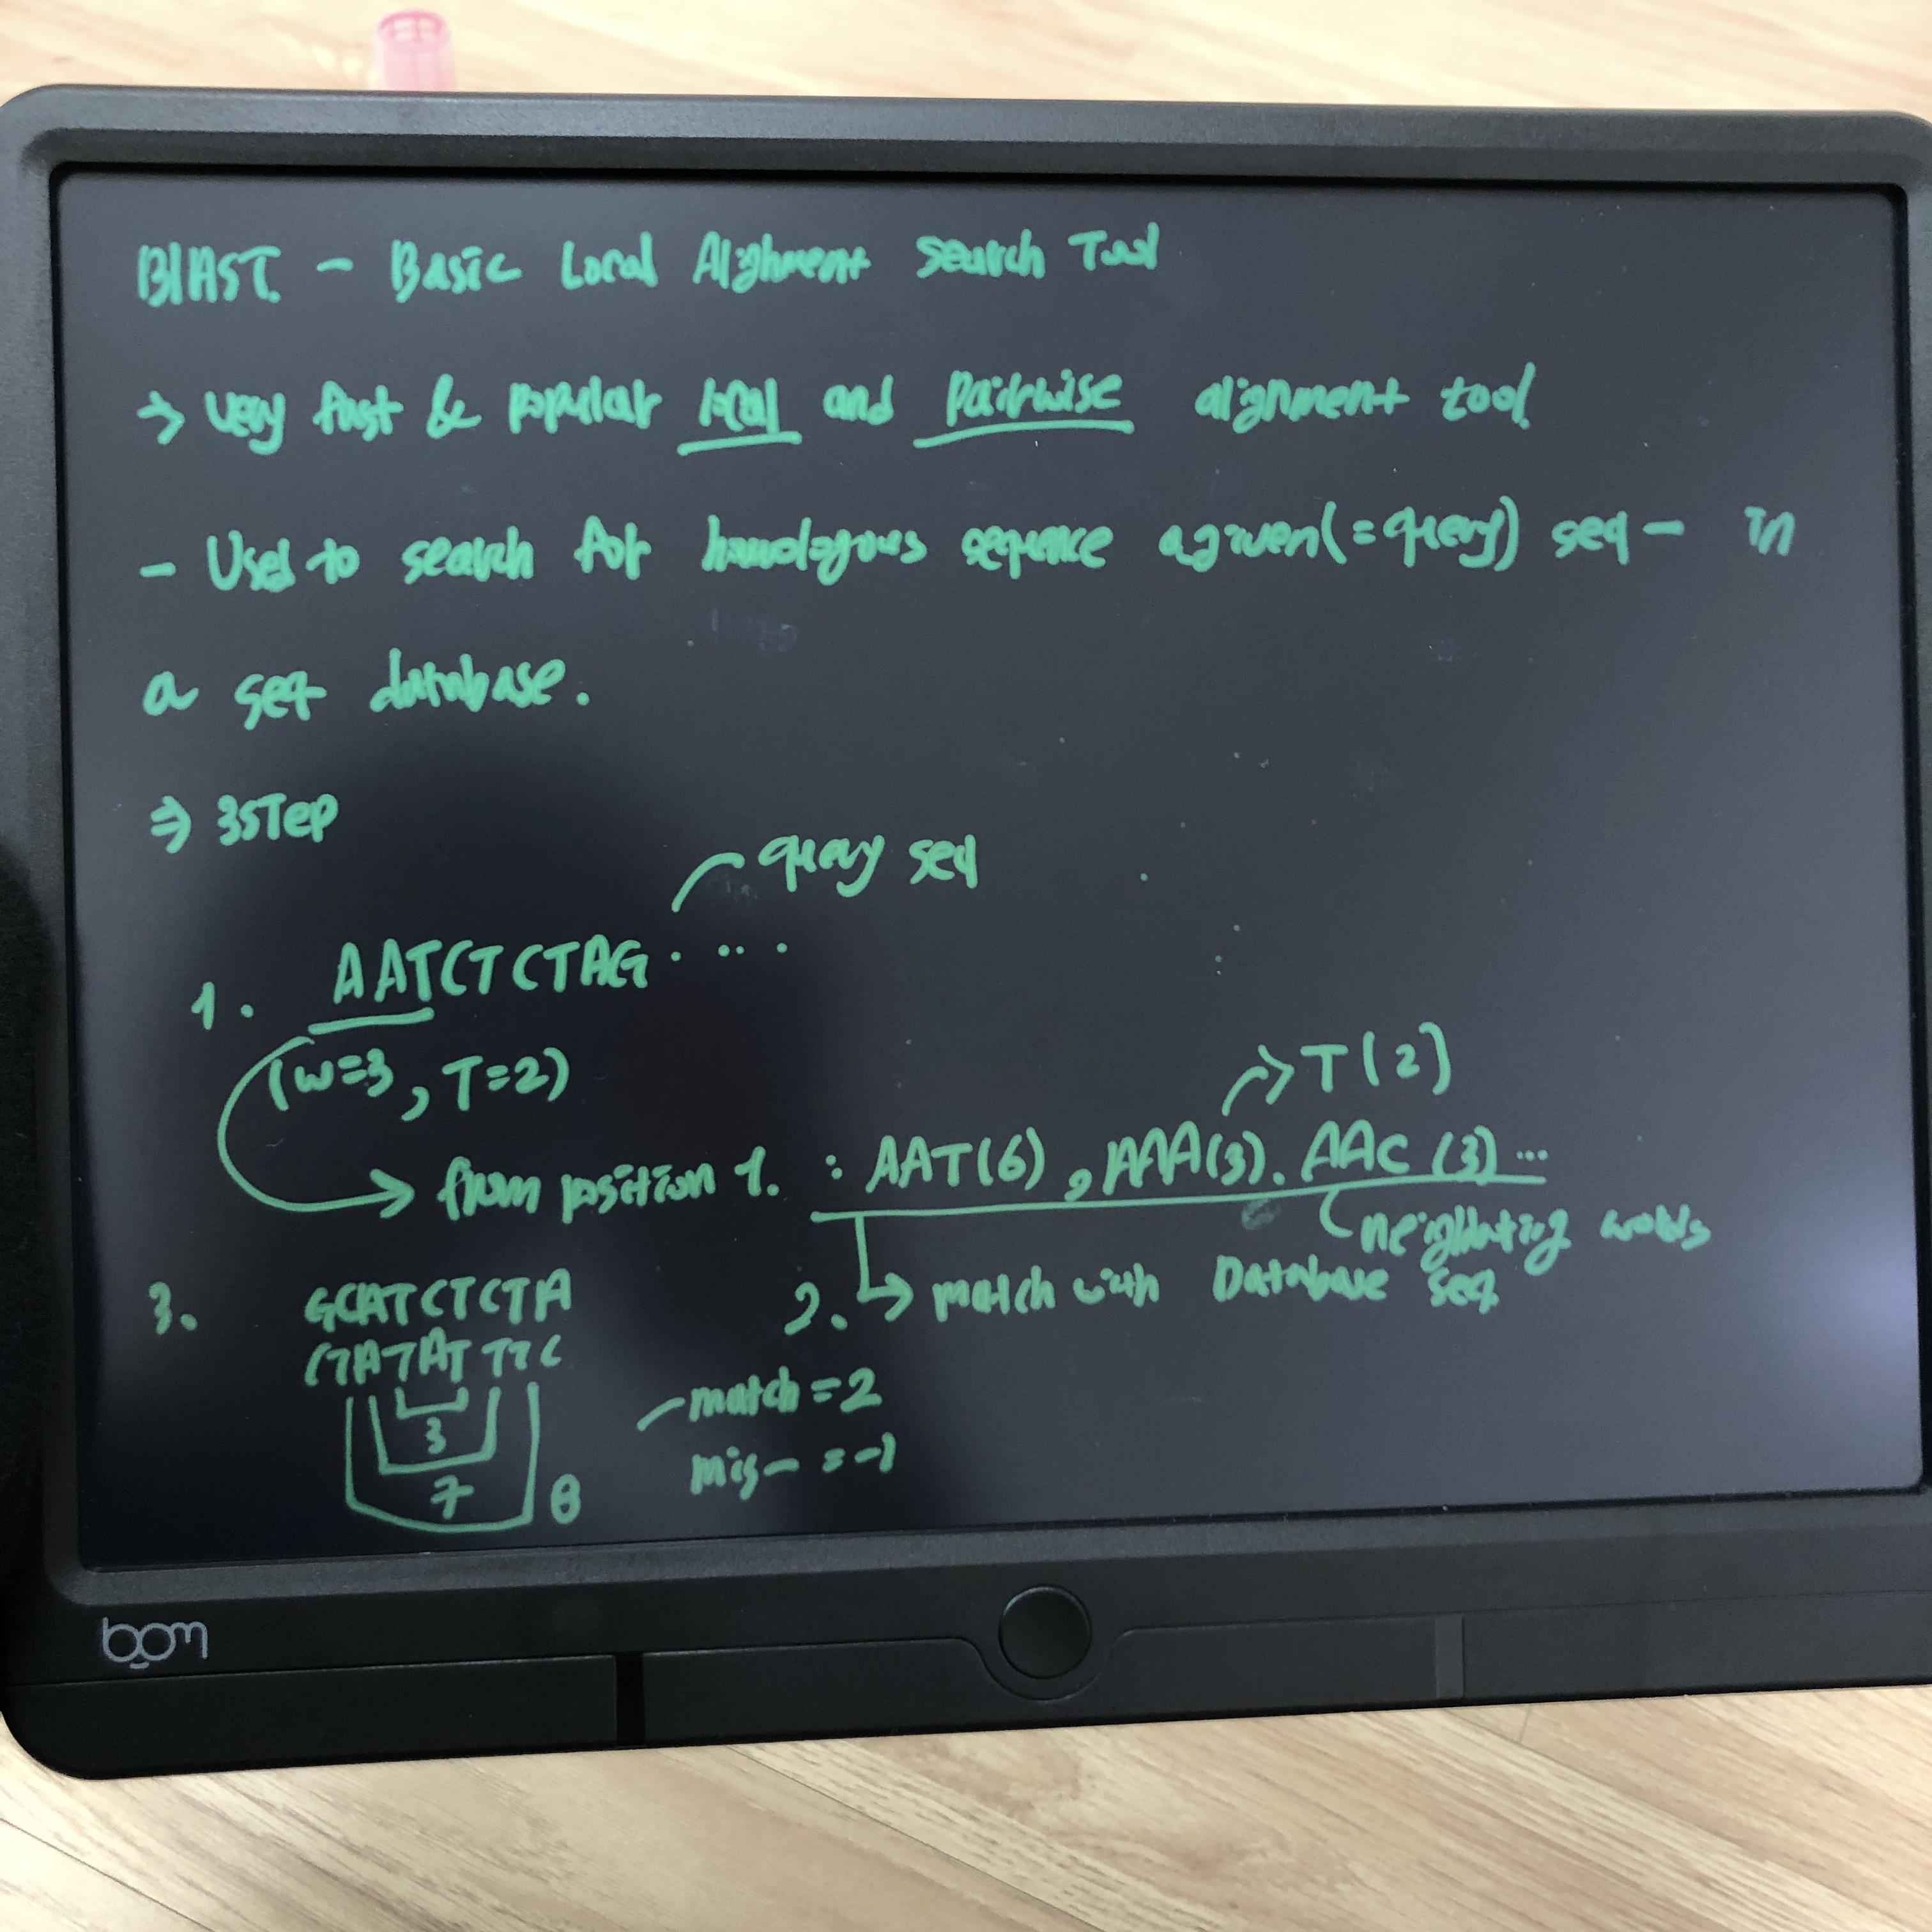 BLAST - Basic Local Alighment Search Tool
→ very fast & popular local and Pairwise alignment tool
- Used to search for homologous sequence agiven(=query) seq- in
a seq database.
⇒ 3STep
query seq
1. AATCTCTAG · ·· ·
(w=3, T=2)
→ T(2)
→ from position 1. : AAT(6), AAA(3). AAC (3) ...
neighboring words
2. → match with Database seq.
3. GCATCTCTA
CTATATTTC
match=2
3
mis- = -1
7
8
bom